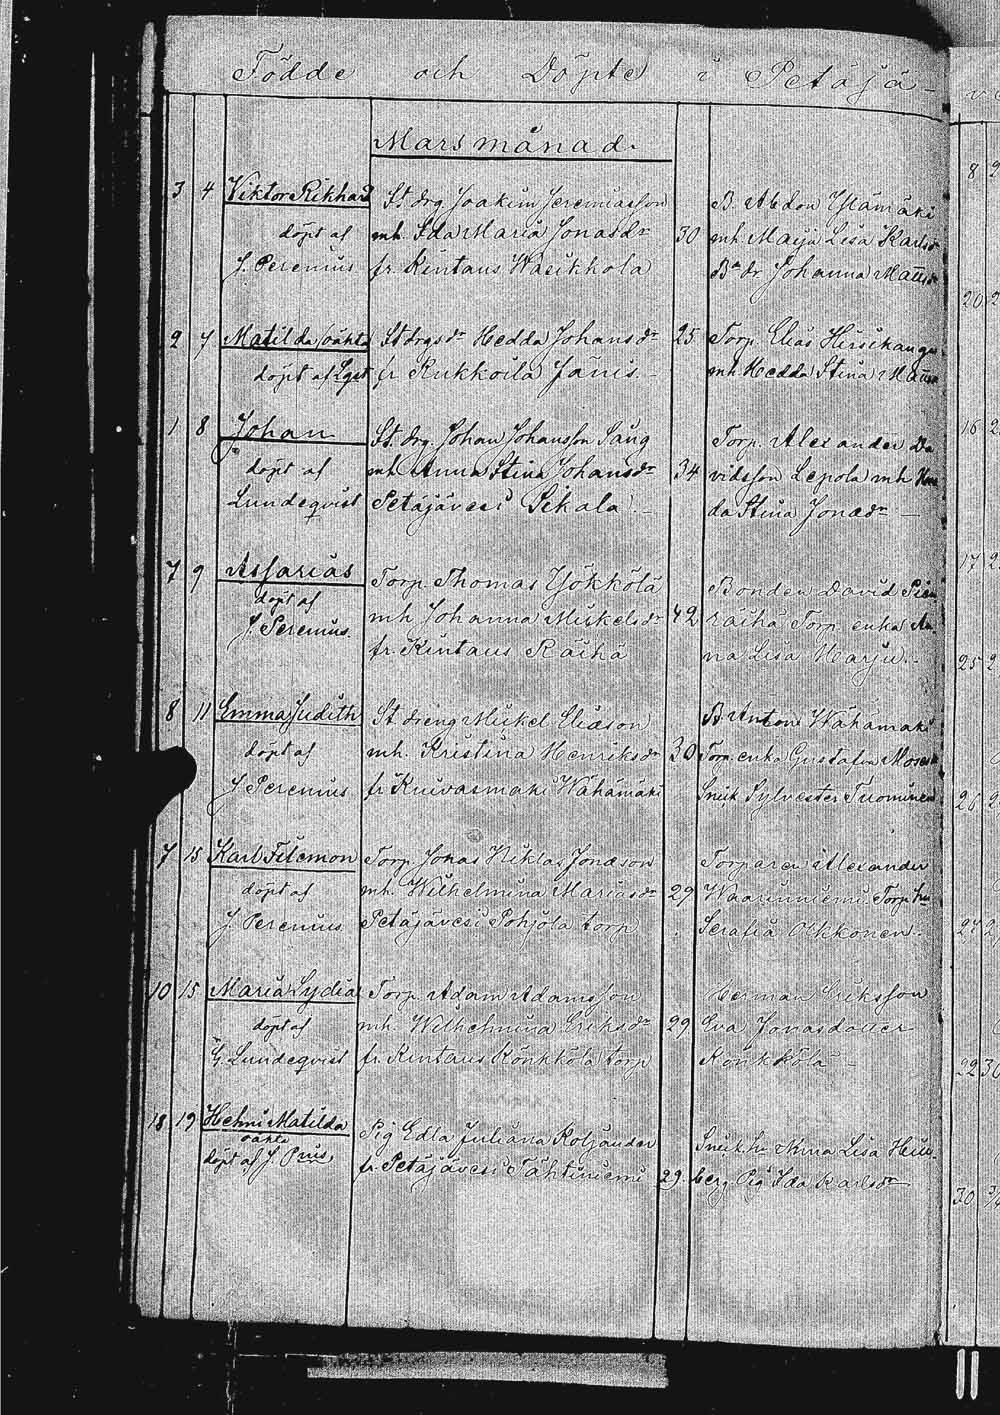 Födde och Döpte i Petäjä-
Mars månad.
3 4 Viktor Rikhard St. drg Joakim Jeremiasson B. Abdon Ylämäki
döpt af mh. Ida Maria Jonasdr 30 mh Maija Lisa Karlsdr
J. Perenius fr. Kintaus Wasikkola Bᵃ dr Johanna Mattsdr
2 7 Matilda /oäkta St drgs dr Hedda Johansdr 25 Torp. Elias Hirsikangas
döpt af Lqst fr Kukkoila Jänis - mh Hedda Stina Mattsdr
1 8 Johan St. drg. Johan Johansson Säug Torp. Alexander Da
döpt af mh Anna Stina Johansdr 34 vidsson Lepola mh
Lundeqvist Petäjävesi Pekala - da Stina Jonasdr -
7 9 Assarias Torp. Thomas Ylökkölä Bonden David
döpt af mh Johanna Mickelsdr 42 raihä Torp. enka An-
J. Perenius. fr. Kintaus Raihä na Lisa Harju.-
8 11 Emma Judith St dreng Mickel Eliæson B. Anton Wähämäki
döpt af mh. Kristina Henriksdr 30 Torp. enka Gustafva
J Perenius fr Kuivasmäki Wähämäki Snick Sylvester Tuominen
7 15 Karl Filemon Torp. Jonas Niklas Jonæson Torparen Alexander
döpt af mh. Wilhelmina Mariasdr 29 Waarinniemi. Torp. hu
J. Perenius Petäjävesi Pohjola torp Serafia Okkonen.-
10 15 Maria Lydia Torp. Adam Adamsson Herman Eriksson
döpt af mh. Wilhelmina Eriksdr 29. Eva Jonasdotter
G. Lundeqvist fr. Kintaus Könkkölä torp Könkkölä -
18 19 Helmi Matilda Pig Edla Juliana Roljander Snick. hu Anna Lisa Hell-
oäkta
döpt af J. Pnius fr. Petäjävesi Tähtiniemi 29. berg Pig Ida Karlsdr
8
20
16
17
25
26
27
22 30
30